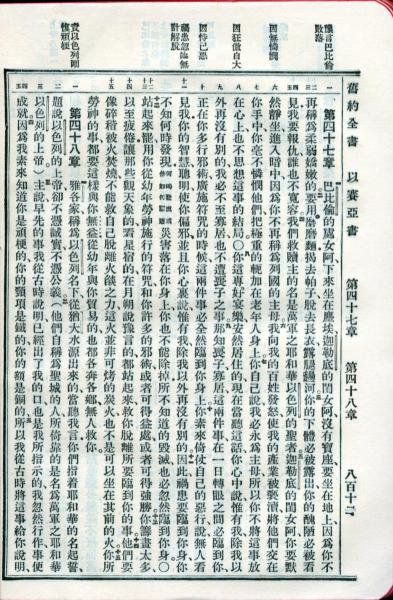 舊約全書 以賽亞書 第四十七章 第四十八章 八百十二
巴比倫敗落
因無憐憫
因狂傲自大
因恃己惡
禍患忽臨無計解脫
責以色列
頑梗
第四十七章 巴比倫的處女阿下來坐在塵埃迦勒底的閨女阿沒有寶座要坐在地上因爲你不
再稱爲柔弱嬌嫩的要用磨磨麵揭去帕子脫去長衣露腿蹚河你的下體必被露出你的醜陋必被看
見我要報仇誰也不寬容我們救贖主的名是萬軍之耶和華以色列的聖者迦勒底的閨女阿你要默
然靜坐進入暗中因爲你不再稱爲列國的主母我向我的百姓發怒使我的產業被褻瀆將他們交在
你手中你毫不憐憫他們把極重的軛加在老年人身上你自己說我必永爲主母所以你不將這事放
在心上也不思想這事的結局○你這專好宴樂安然居住的現在當聽這話你心中說惟有我除我以
外再沒有別的我必不至寡居也不遭喪子之事那知喪子寡居這兩件事在一日轉眼之間必臨到你
正在你多行邪術廣施符咒的時候這兩件事必全然臨到你身上你素來倚仗自己的惡行說無人看
見我你的智慧聰明使你偏邪並且你心裏說惟有我除我以外再沒有別的因此禍患要臨到你身你
不知何時發現災害落在你身上你也不能除掉所不知道的毀滅也必忽然臨到你身
站起來罷用你從幼年勞神施行的符咒和你許多的邪術或者可得益處或者可得強勝你籌畫太多
以至疲倦讓那些觀天象的看星宿的在月朔說豫言的都站起來救你脫離所要臨到你的事他們要
像碎稭被火焚燒不能救自己脫離火燄之力這火並非可烤的炭火也不是可以坐在其前的火你所
勞神的事都要這樣與你無益從幼年與你貿易的也都各奔各鄉無人救你
第四十八章 雅各家稱爲以色列名下從猶大水源出來的當聽我言你們指着耶和華的名起誓
題說以色列的上帝卻不憑誠實不憑公義他們自稱爲聖城的人所倚靠的是名爲萬軍之耶和華
以色列的上帝主說早先的事我從古時說明已經出了我的口也是我所指示的我忽然行事便
成就因爲我素來知道你是頑梗的你的頸項是鐵的你的額是銅的所以我從古時將這事給你說明